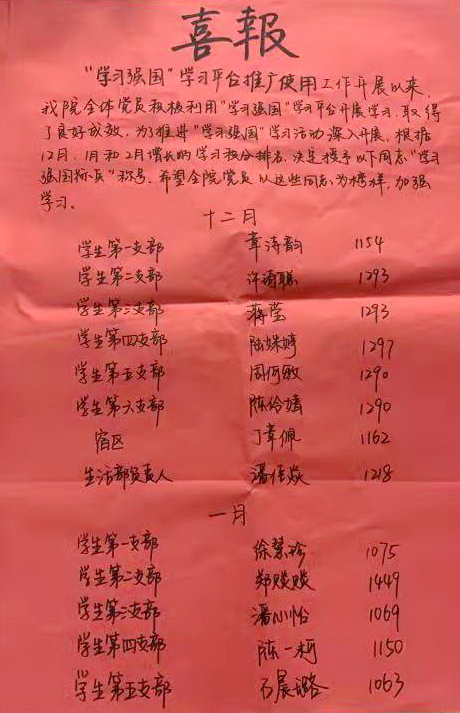 喜報
"学习强国"学习平台推广使用工作开展以来,
我院全体党员积极利用"学习强国"学习平台开展学习,取得
了良好成效。为了推进"学习强国"学习活动深入开展,根据
12月、1月和2月增长的学习积分排名,决定授予以下同志"学习
强国标兵"称号。希望全院党员以这些同志为榜样,加强
学习。
十二月
学生第一支部 章诗韵 1154
学生第二支部 许 聪 1293
学生第三支部 蒋莹 1293
学生第四支部 陆姝婷 1297
学生第五支部 周何敏 1290
学生第六支部 陈伶婧 1290
宿区 丁章佩 1162
生活部负责人 潘佳焱 1218
一月
学生第一支部 徐慧珍 1075
学生第二支部 郑赕赕 1449
学生第三支部 潘小怡 1069
学生第四支部 陈一柯 1150
学生第五支部 石晨璐 1063